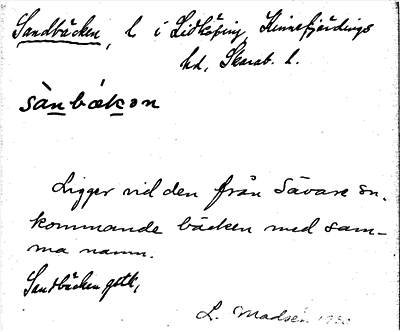 Sandbäcken, l i Lidköping, Kinnefjerdings
hd, Skarab. l.
sànbækən
Ligger vid den från Sävare sn.
kommande bäcken med sam-
ma namn.
Sandbäcken gatt,
L. Madsén 1930